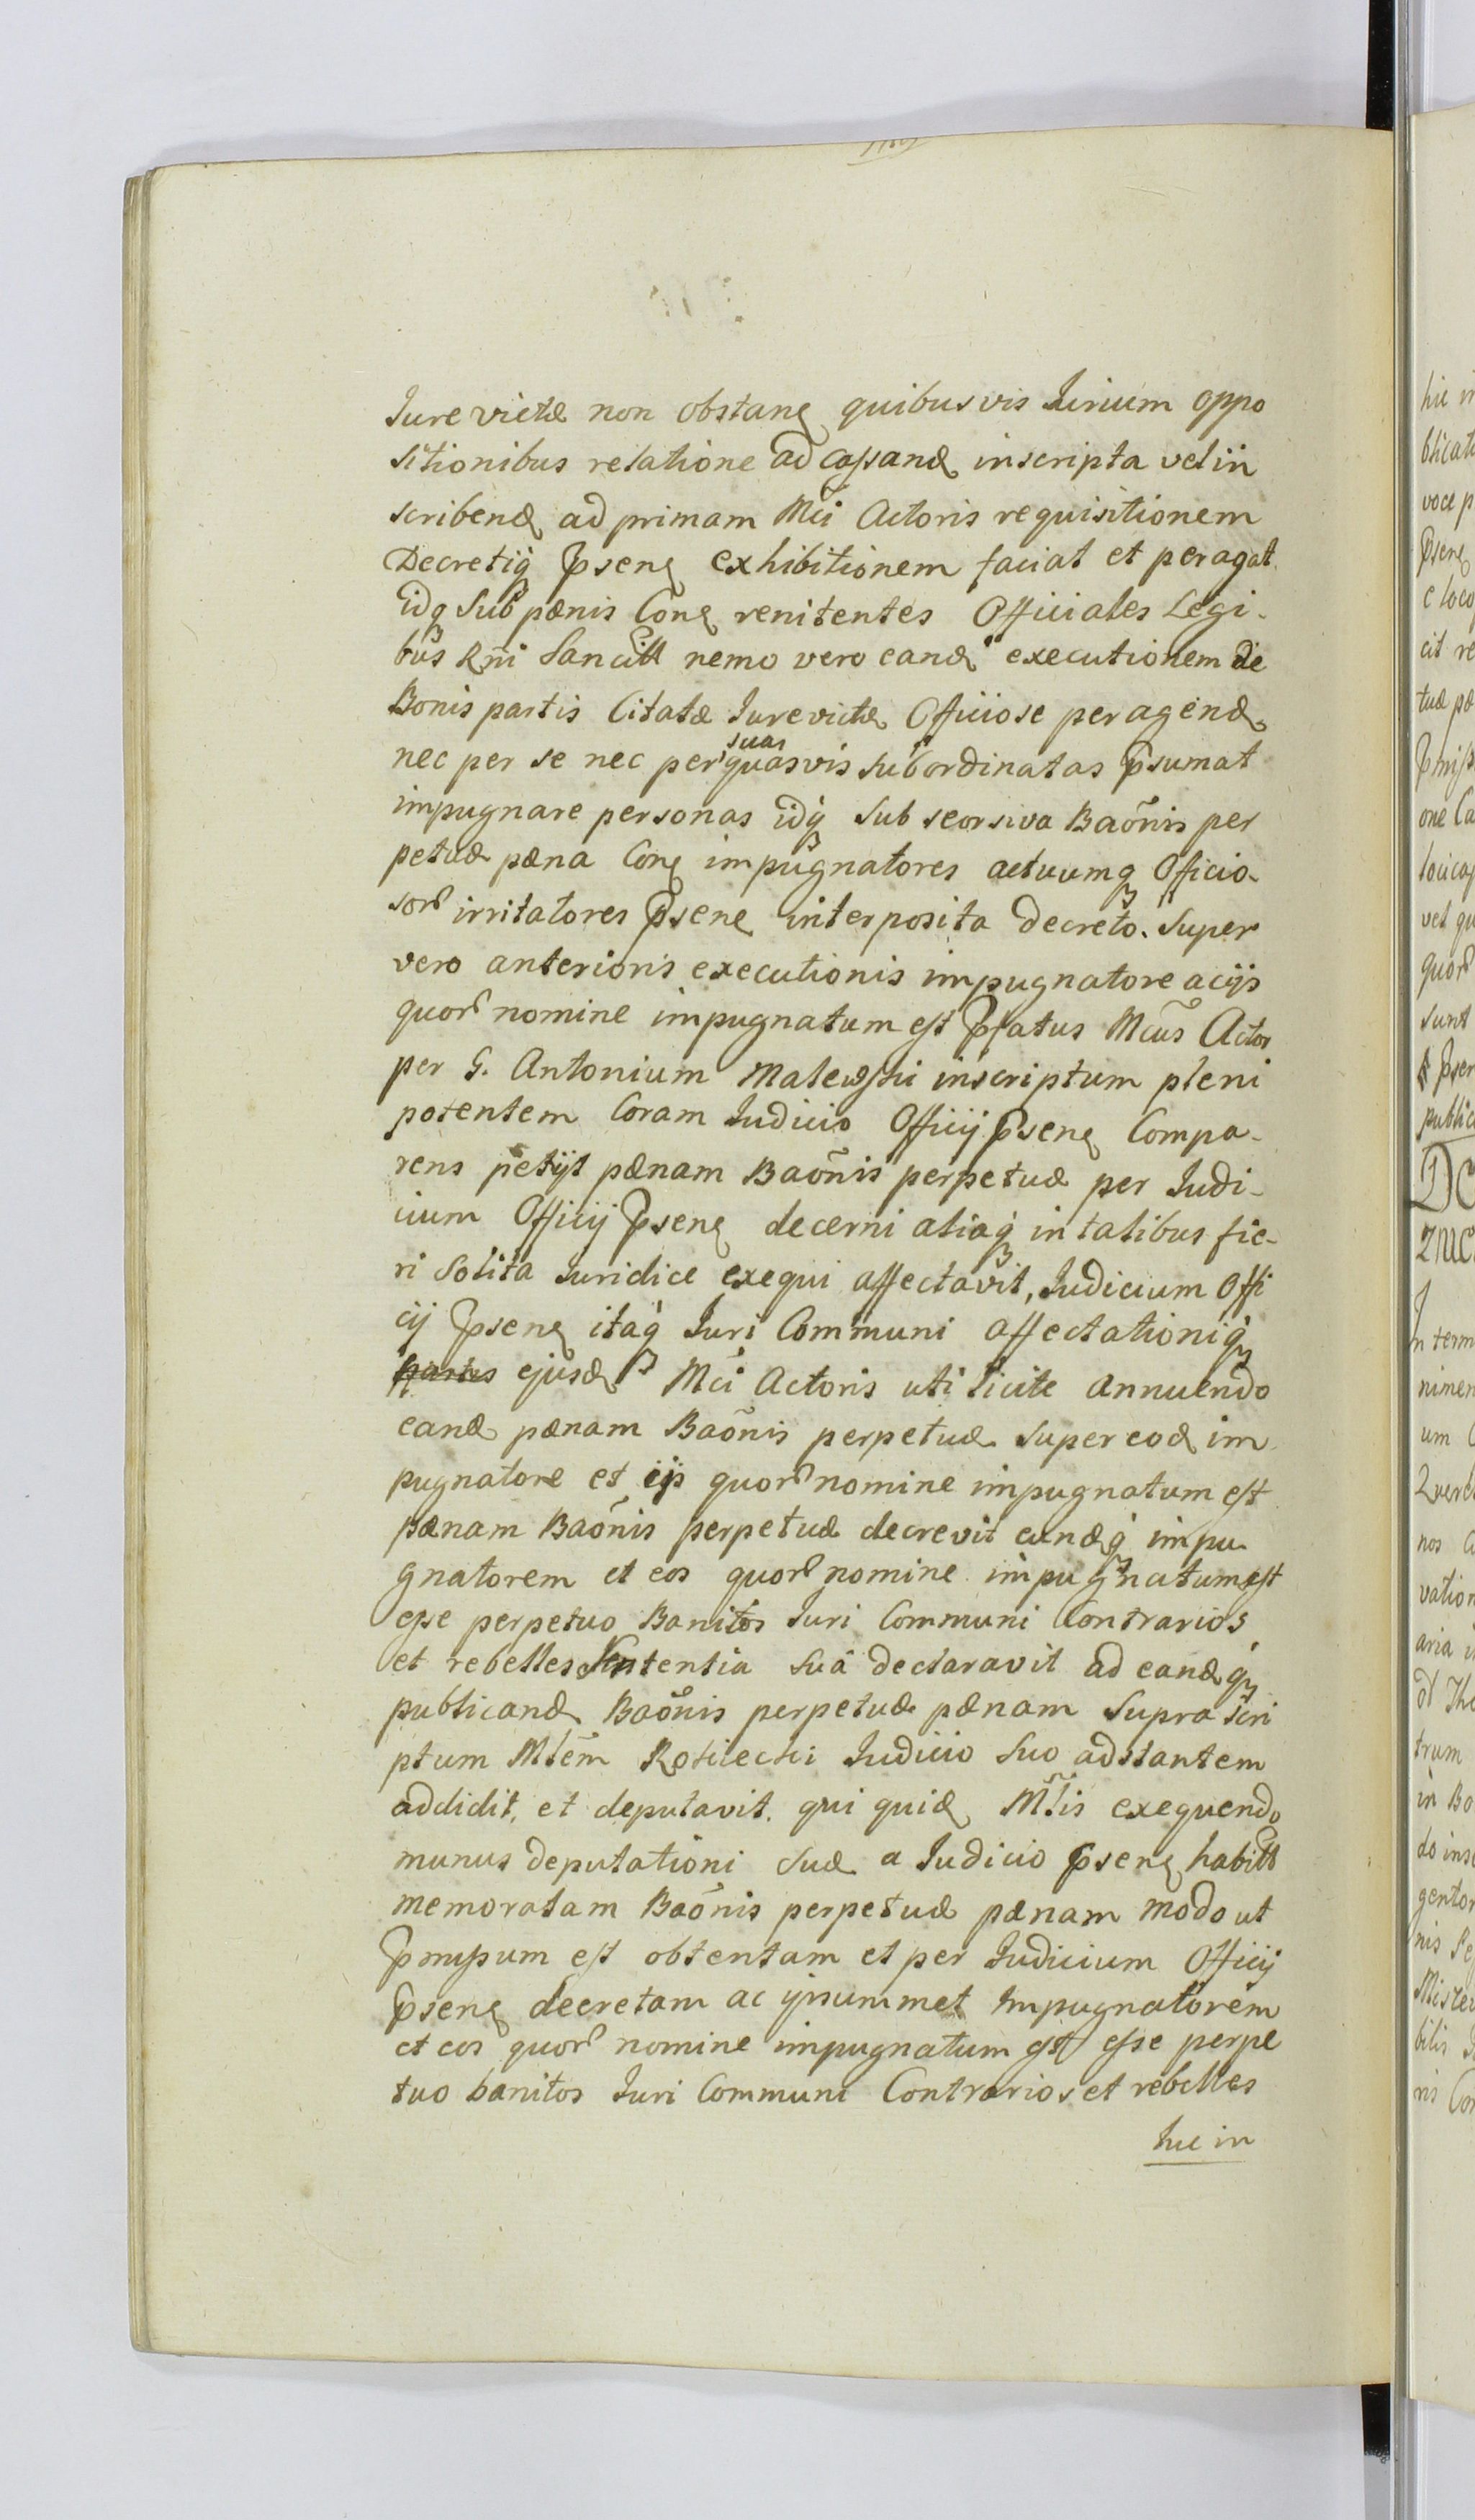 Jure victæ non obstanꝫ quibusvis Jurium oppo
sitionibus relatione ad cassandꝫ inscripta vel in
scribendꝫ ad primam Mci Actoris requisitionem
Decretiq̃ Pseñꝫ exhibitionem faciat et peragat
idq̃ sub pænis Conꝫ renitentes Officiales Legi-
bus Rñi Sancitt nemo vero eandꝫ executionem de
Bonis partis Citatæ Jurevictæ Officiose peragendꝫ
nec per se nec per suas quasvis subordinatas Psumat
impugnare personas idq̃ sub seorsiva Baõnis per
petuæ pæna Conꝫ impugnatores actuumq̃ Officio-
sorꝫ irritatores Psenꝫ interposita decreto. Super
vero anterioris executionis impugnatore ac ijs
quorꝫ nomine impugnatum est Pfatus Mcus Actor
per G. Antonium Malewski inscriptum pleni
potentem Coram Judicio Officij Psenꝫ Compa-
rens petijt pænam Baõnis perpetuæ per Judi-
cium Officij Psenꝫ decerni aliaq̃ in talibus fie-
ri solita Juridice exequi affectavit, Judicium Offi
cij Psenꝫ itaq̃ Juri Communi affectationiq̃
partis ejusdꝫ Mci Actoris uti licite annuendo
eandꝫ pænam Baõnis perpetuæ super eodꝫ im
pugnatore et ijs quorꝫ nomine impugnatum est
pænam Baõnis perpetuæ decrevit eundꝫq̃ impu
gnatorem et eos quorꝫ nomine impugnatum est
esse perpetuo Banitos Juri Communi Contrarios
et rebelles Sententia suâ declaravit ad eandꝫq̃
publicandꝫ Baõnis perpetuæ pænam supra scri
ptum Mlem Kosciecki Judicio suo adstantem
addidit, et deputavit. qui quidꝫ Mlis exequendo
munus deputationi suæ a Judicio Psenꝫ habitt
memoratam Baõnis perpetuæ pænam modo ut
Pmissum est obtentam et per Judicium Officij
Psenꝫ decretam ac ipsummet Impugnatorem
et eos quorꝫ nomine impugnatum est esse perpe
tuo banitos Juri Communi Contrarios et rebelles
hic in